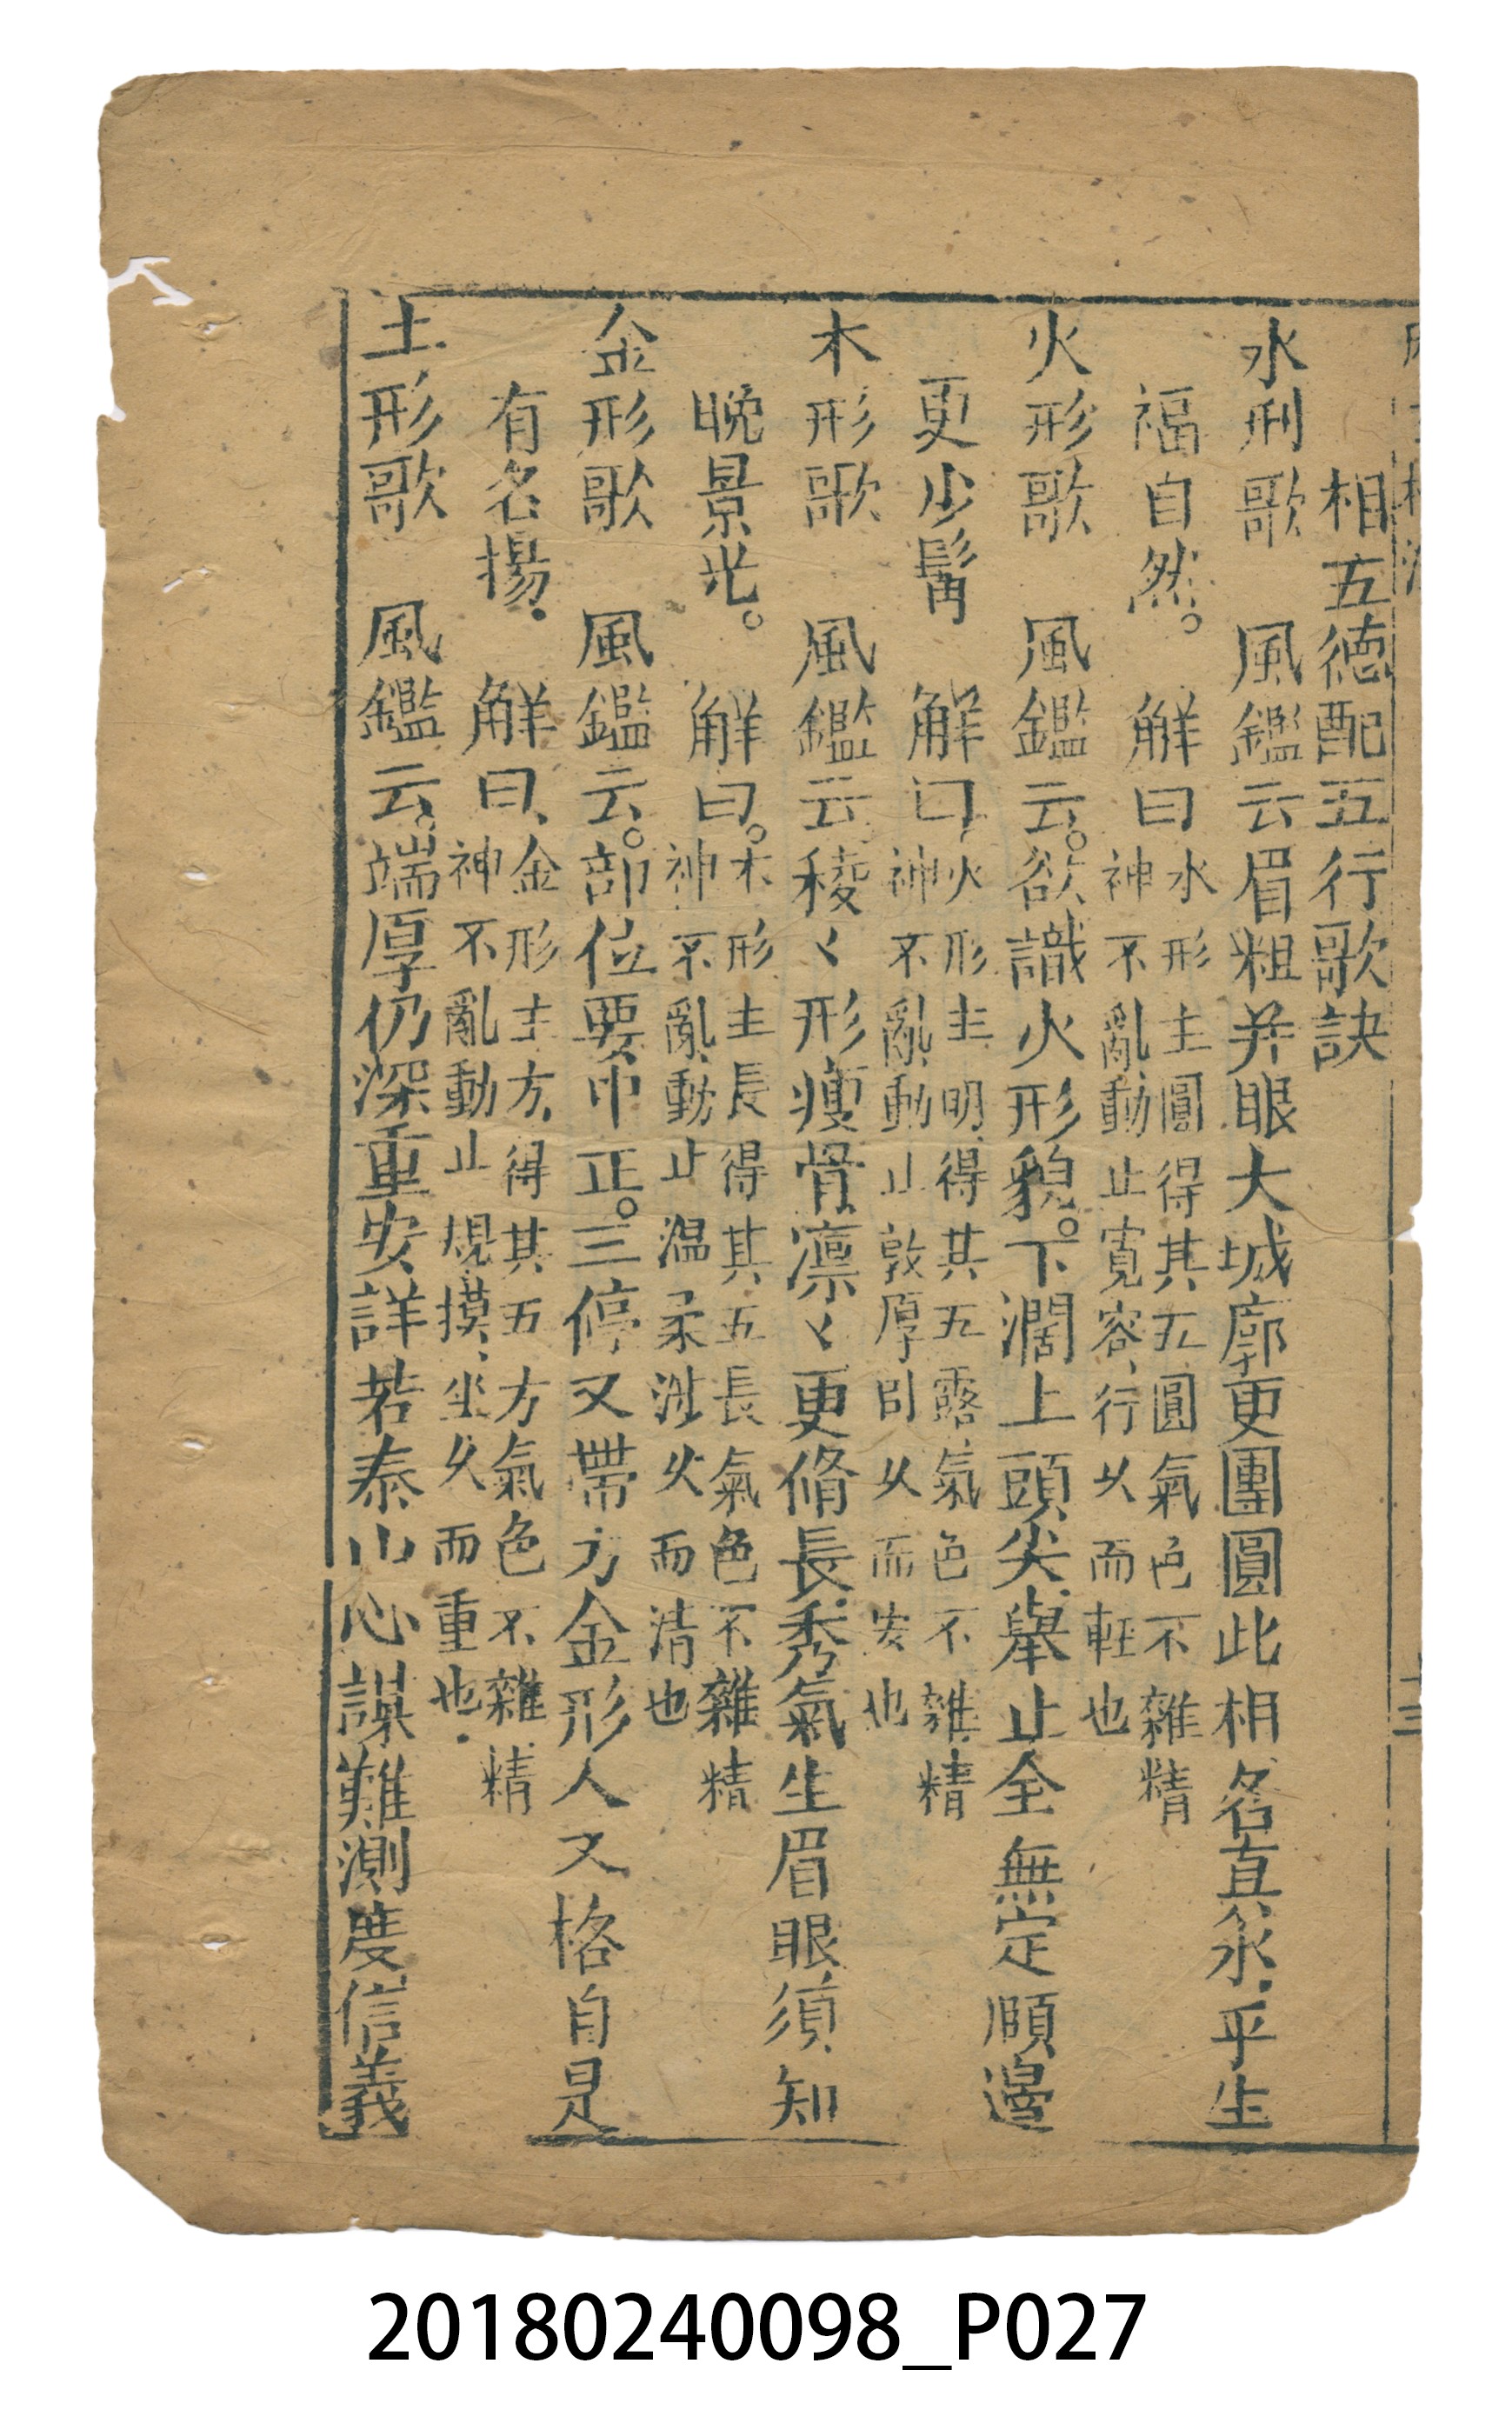 相五德配五行歌訣
水刑歌　風鑑云眉粗并眼大城廓更團圓此相名真水乎生
福自然。　觧曰水形主圓得其五圓氣色不雜精
神不亂動止寬容行以而輕也
火形歌　風鑑云。欲識火形貌。下濶上頭尖舉止全無定頤邊
更少髯　解曰火形主明得其五露氣色不雜精
神不亂動止敦厚臥久而安也
木形歌　風鑑云稜〻形瘦骨凛〻更脩長秀氣生眉眼須知
晚景光。　觧曰。木形主長得其五長氣色不雜精
神不亂動止温柔涉久而清也
金形歌　風鑑云。部位要巾正。三停又帶方金形人又格自是
有名揚．　觧曰金形主方得其五方氣色不雜精
神不亂動止規摸坐久而重也．
土形歌　風鑑云。端厚仍深重安詳若泰山心謀難測度信義
20180240098_P027